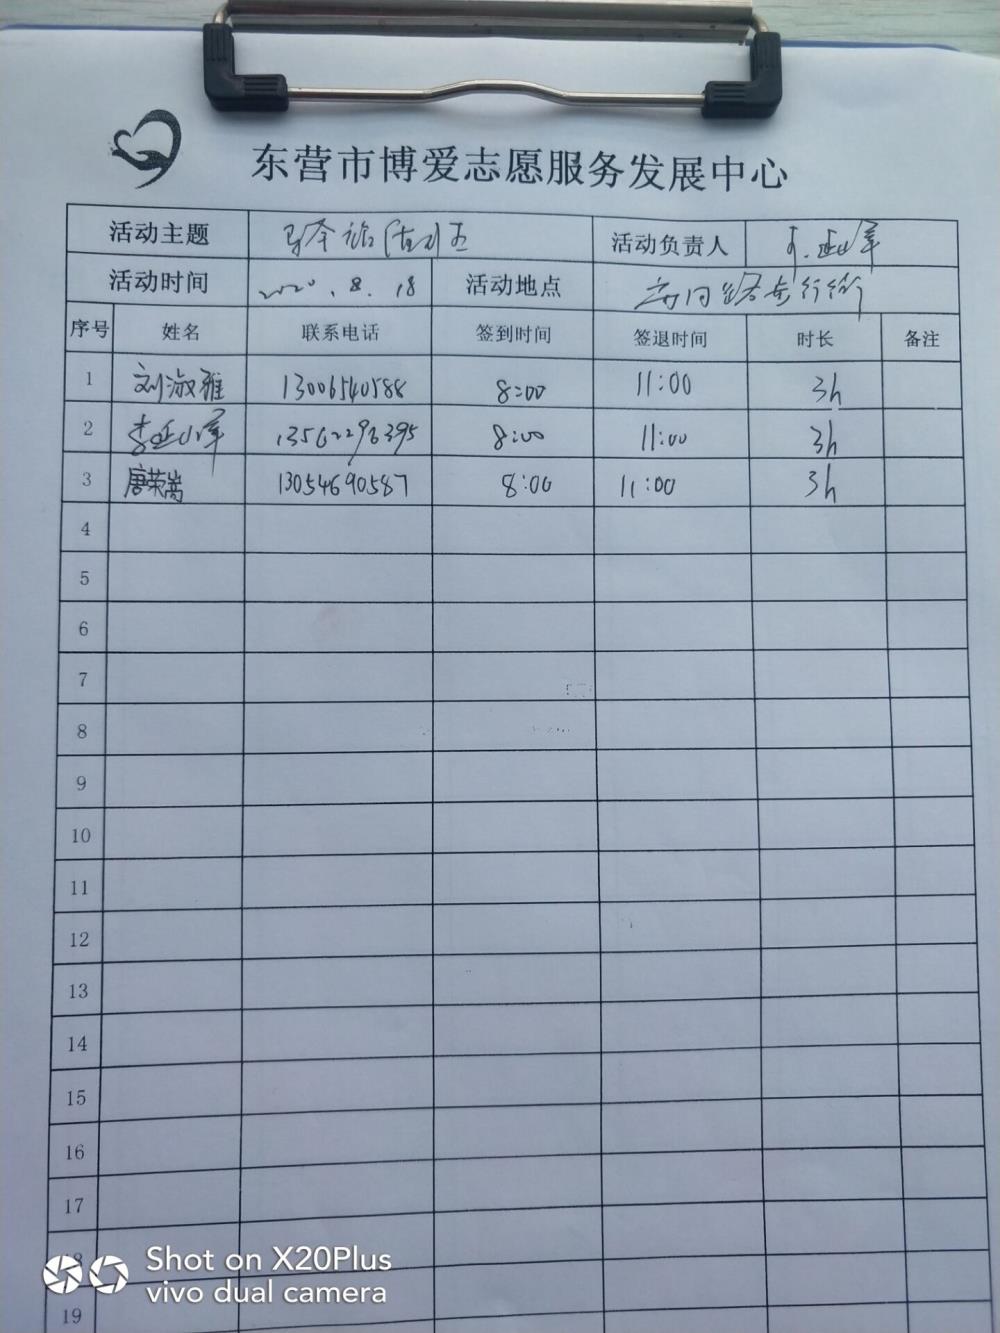 东营市博爱志愿服务发展中心
活动主题 活动负责人
活动时间 2020.8.18 活动地点
序号 姓名 联系电话 签到时间 签退时间 时长 备注
1 刘淑雅 13006540588 8:00 11:00 3h
2 李延军 13562296395 8:00 11:00 3h
3 唐荣嵩 13054690587 8:00 11:00 3h
4
5
6
7
8
9
10
11
12
13
14
15
16
17
18
19
Shot on X20Plus
vivo dual camera